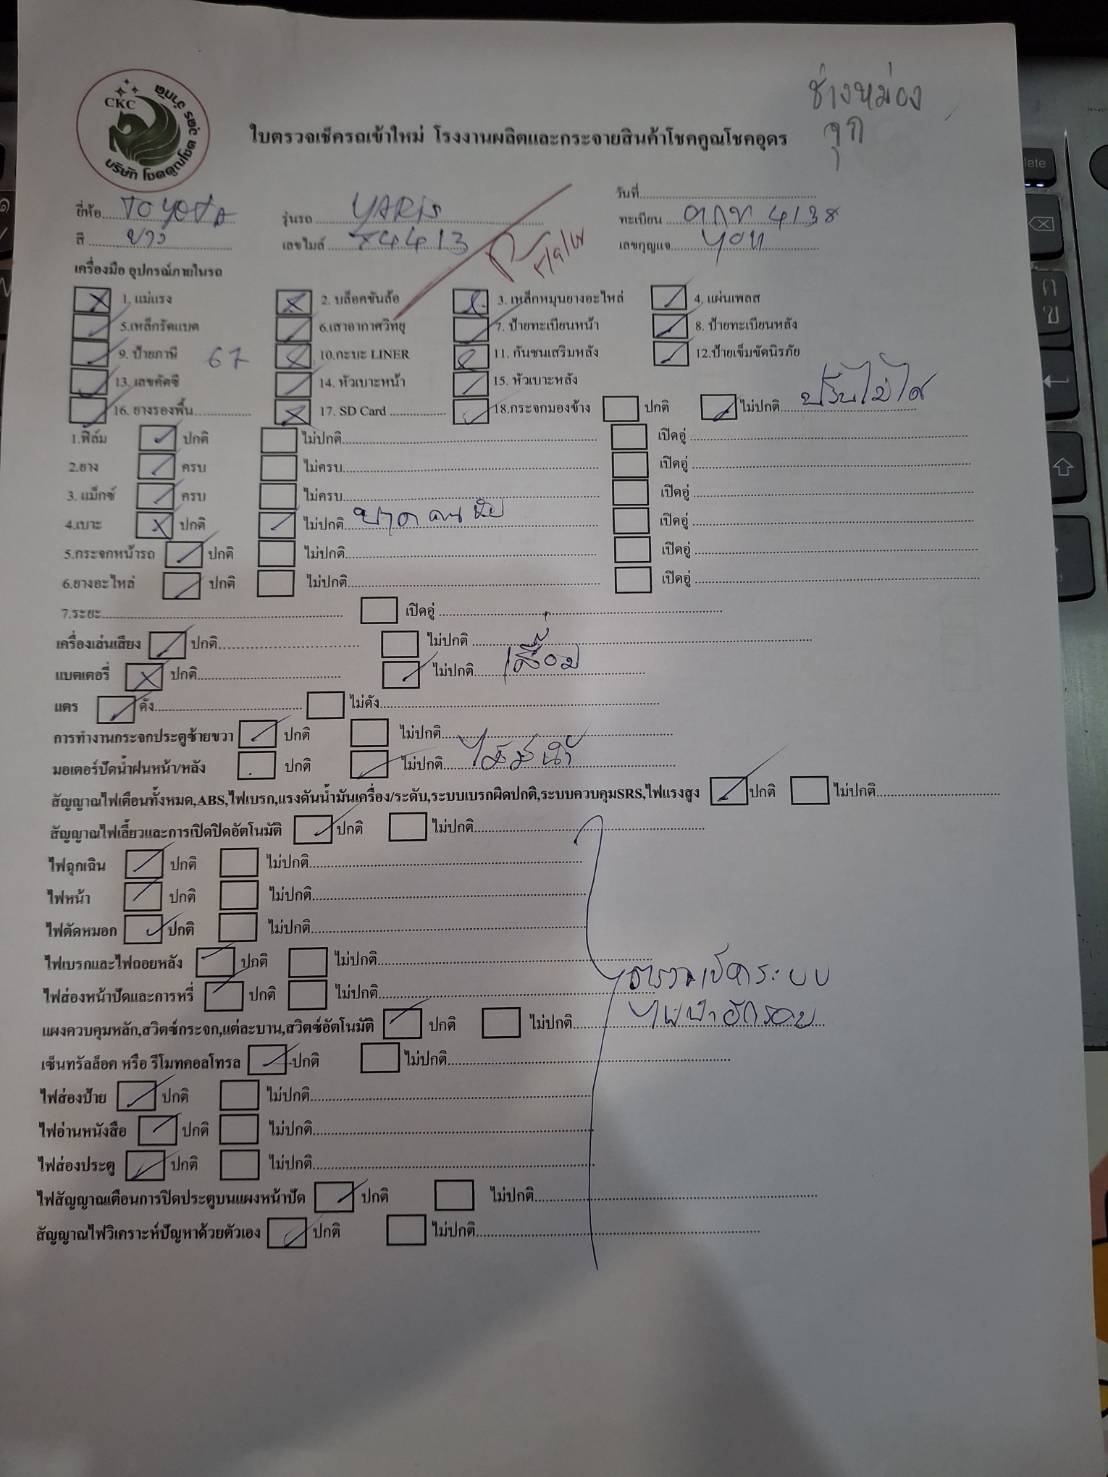 ช่างหม่อง
CKC
บริษัท โชคคูณโชค อุดร จำกัด
ใบตรวจเช็ครถเข้าใหม่ โรงงานผลิตและกระจายสินค้าโชคคูณโชคอุดร
วันที่
ยี่ห้อ TOYOTA รุ่นรถ YARIS ทะเบียน 4138
สี ขาว เลขไมล์ 84413 เลขกุญแจ
เครื่องมือ อุปกรณ์ภายในรถ
1. แม่แรง 2. บล็อคขันล้อ 3. เหล็กหมุนยางอะไหล่ 4. แผ่นเพลส
5.เหล็กรัดแบต 6.เสาอากาศวิทยุ 7. ป้ายทะเบียนหน้า 8. ป้ายทะเบียนหลัง
9. ป้ายภาษี 67 10.กะบะ LINER 11. กันชนเสริมหลัง 12.ป้ายเข็มขัดนิรภัย
13. เลขคัดซี 14. หัวเบาะหน้า 15. หัวเบาะหลัง
16. ยางรองพื้น 17. SD Card 18.กระจกมองข้าง ปกติ ไม่ปกติ ปรับไม่ได้
1.ฟิล์ม ปกติ ไม่ปกติ เปิดอู่
2.ยาง ครบ ไม่ครบ เปิดอู่
3. แม็กซ์ ครบ ไม่ครบ เปิดอู่
4.เบาะ ปกติ ไม่ปกติ ขาด คนขับ เปิดอู่
5.กระจกหน้ารถ ปกติ ไม่ปกติ เปิดอู่
6.ยางอะไหล่ ปกติ ไม่ปกติ เปิดอู่
7.ระยะ เปิดอู่
เครื่องเล่นเสียง ปกติ ไม่ปกติ
แบตเตอรี่ ปกติ ไม่ปกติ เสื่อม
แตร ดัง ไม่ดัง
การทำงานกระจกประตูซ้ายขวา ปกติ ไม่ปกติ
มอเตอร์ปัดน้ำฝนหน้า/หลัง ปกติ ไม่ปกติ ไม่มีน้ำ
สัญญาณไฟเตือนทั้งหมด,ABS,ไฟเบรก,แรงดันน้ำมันเครื่อง/ระดับ,ระบบเบรกผิดปกติ,ระบบควบคุมSRS,ไฟแรงสูง ปกติ ไม่ปกติ
สัญญาณไฟเลี้ยวและการเปิดปิดอัตโนมัติ ปกติ ไม่ปกติ
ไฟฉุกเฉิน ปกติ ไม่ปกติ
ไฟหน้า ปกติ ไม่ปกติ
ไฟตัดหมอก ปกติ ไม่ปกติ
ไฟเบรกและไฟถอยหลัง ปกติ ไม่ปกติ
ไฟส่องหน้าปัดและการหรี่ ปกติ ไม่ปกติ ตรวจเช็คระบบ
แผงควบคุมหลัก,สวิตซ์กระจก,แต่ละบาน,สวิตซ์อัตโนมัติ ปกติ ไม่ปกติ ไฟฟ้าอีกรอบ
เซ็นทรัลล็อค หรือ รีโมทคอลโทรล ปกติ ไม่ปกติ
ไฟส่องป้าย ปกติ ไม่ปกติ
ไฟอ่านหนังสือ ปกติ ไม่ปกติ
ไฟส่องประตู ปกติ ไม่ปกติ
ไฟสัญญาณเตือนการปิดประตูบนแผงหน้าปัด ปกติ ไม่ปกติ
สัญญาณไฟวิเคราะห์ปัญหาด้วยตัวเอง ปกติ ไม่ปกติ